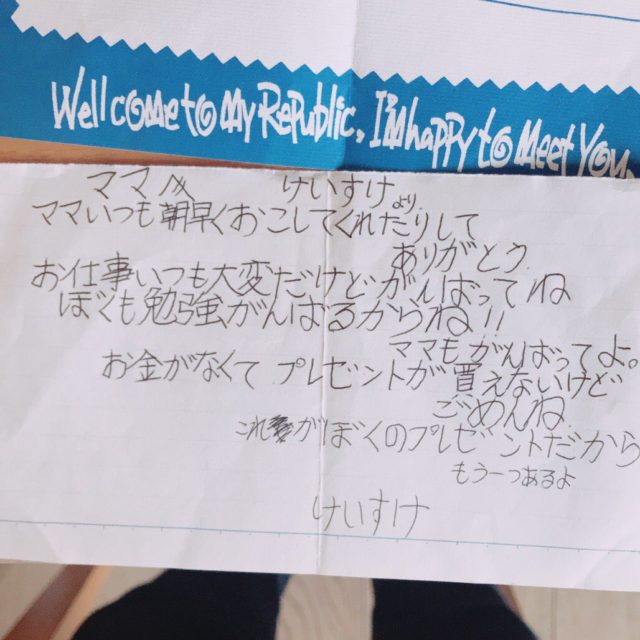 Wellcome to My RepubLic. I'm happy to Meet You.
ママへ けいすけより
ママいつも朝早くおこしてくれたりして
ありがとう
お仕事いつも大変だけどがんばってね
ぼくも勉強がんばるからね!!
ママもがんばってよ。
お金がなくてプレゼントが買えないけど
ごめんね
これがぼくのプレゼントだから
もう一つあるよ
けいすけ